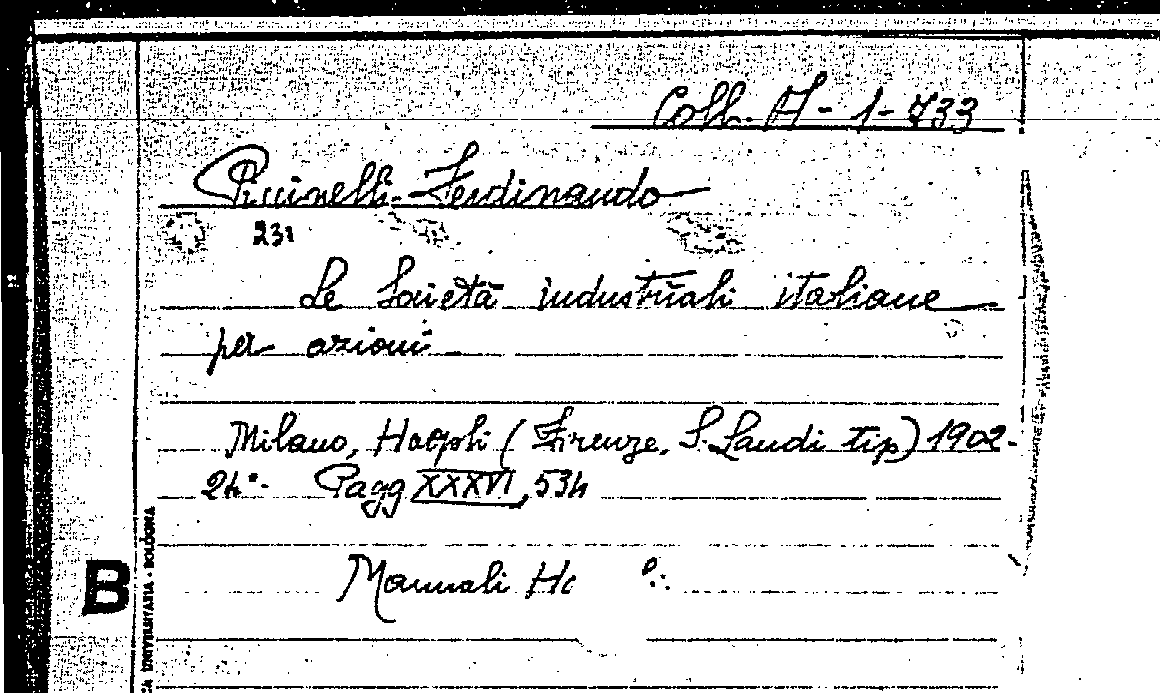 Coll. A - 1 - 733
Piccinelli Ferdinando
231
Le Società industriali italiane
per azioni
Milano, Hoepli (Firenze, S. Landi tip) 1902.
24°. Pagg XXXVI, 534
Manuali Ho
B
CA UNIVERSITARIA - BOLOGNA